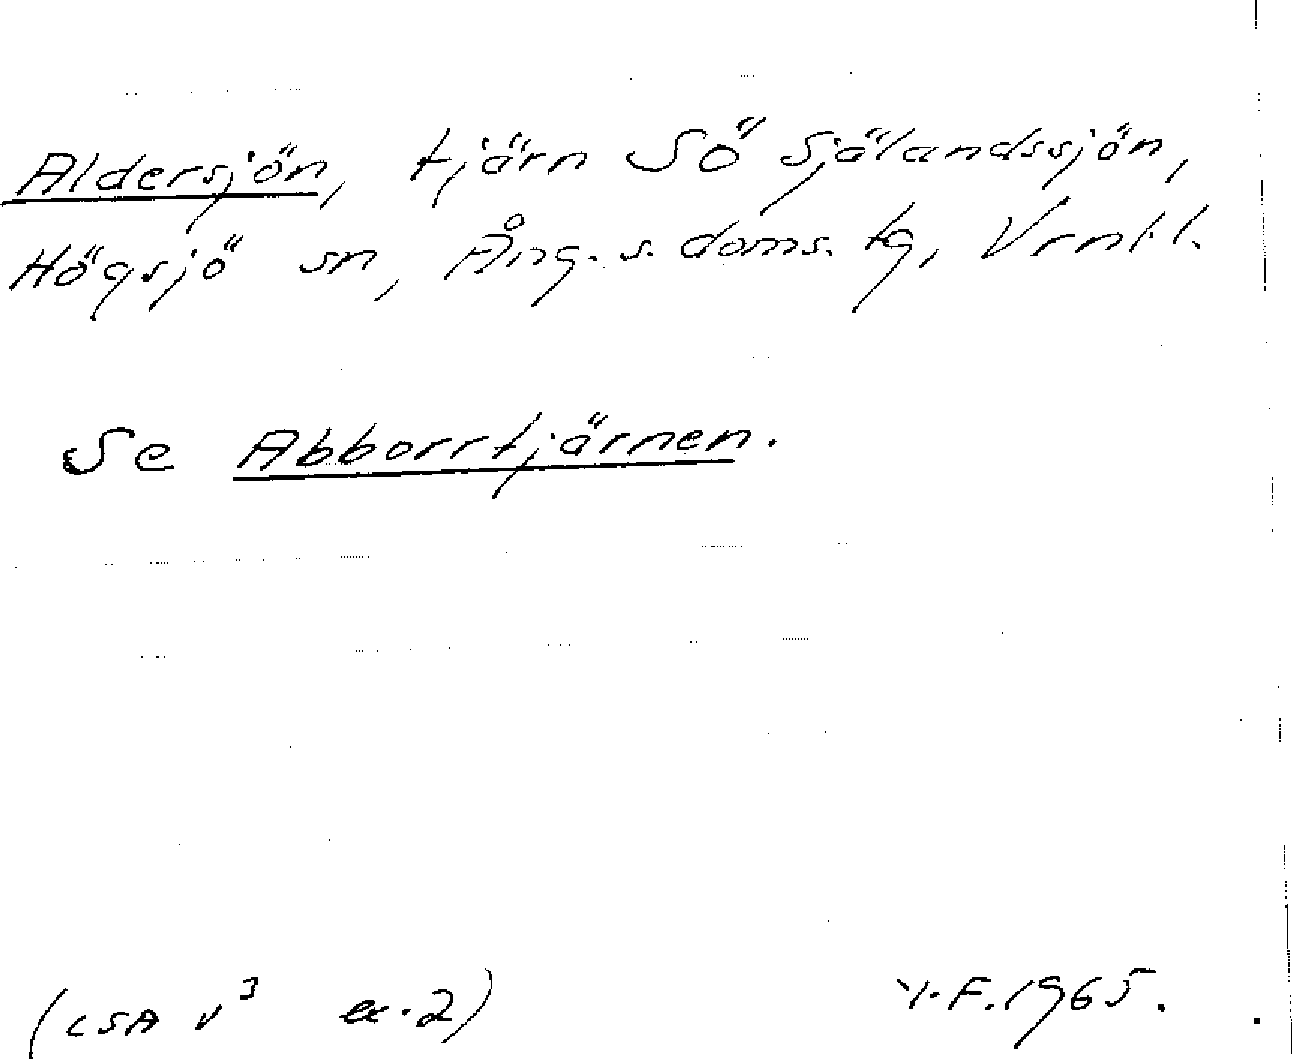 Aldersjön, tjärn SÖ Själandssjön,
Högsjö sn, Ång. s. doms. tg, Vrnl.l.
Se Abborrtjärnen.
(LSA v³ ex. 2) Y.F. 1965.